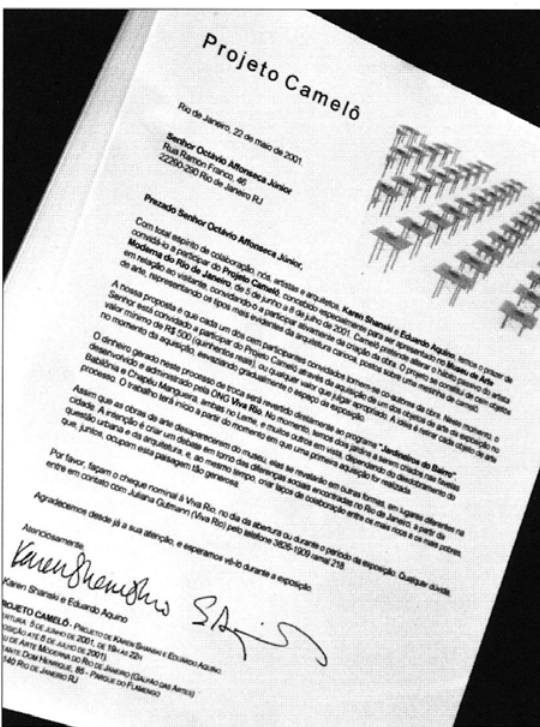 Projeto Camelô
Rio de Janeiro, 22 de maio de 2001.
Senhor Octávio Affonseca Júnior
Rua Ramon Franco, 46
22290-290 Rio de Janeiro RJ
Prezado Senhor Octávio Affonseca Júnior,
Com total espírito de colaboração, nós, artistas e arquitetos, Karen Shanski e Eduardo Aquino, temos o prazer de
convidá-lo a participar do Projeto Camelô, concebido especialmente para ser apresentado no Museu de Arte
Moderna do Rio de Janeiro, de 5 de junho a 8 de julho de 2001. Camelô pretende alterar o hábito passivo do artista
em relação ao visitante, convidando-o a participar ativamente da criação da obra. O projeto se constitui de cem objetos
de arte, representando os tipos mais evidentes da arquitetura carioca, postos sobre uma mesinha de camelô.
A nossa proposta é que cada um dos cem participantes convidados tornem-se co-autores da obra. Neste momento, o
Senhor está convidado a participar do Projeto Camelô através da aquisição de um dos objetos de arte da exposição no
valor mínimo de R$ 500 (quinhentos reais), ou qualquer valor que julgar apropriado. A idéia é retirar cada objeto de arte
no momento da aquisição, esvaziando gradualmente o espaço da exposição.
O dinheiro gerado neste processo de troca será revertido diretamente ao programa "Jardineiros do Bairro"
desenvolvido e administrado pela ONG Viva Rio. No momento, temos dois jardins a serem criados nas favelas
Babilônia e Chapéu Mangueira, ambas no Leme, e muitos outros em vista, dependendo do desdobramento do
processo. O trabalho terá início a partir do momento em que uma primeira aquisição for realizada.
Assim que as obras de arte desaparecerem do museu, elas se revelarão em outras formas, em lugares diferentes na
cidade. A intenção é criar um debate em torno das diferenças sociais encontradas no Rio de Janeiro, a partir da
questão urbana e da arquitetura, e, ao mesmo tempo, criar laços de colaboração entre os mais ricos e os mais pobres,
que, juntos, ocupam esta paisagem tão generosa.
Por favor, façam o cheque nominal à Viva Rio, no dia da abertura ou durante o período da exposição. Qualquer dúvida,
entre em contato com Juliana Gutmann (Viva Rio) pelo telefone 3826-1909 ramal 218
Agradecemos desde já a sua atenção, e esperamos vê-lo durante a exposição.
Atenciosamente,
Karen Shanski e Eduardo Aquino
ROJETO CAMELÔ - PROJETO DE KAREN SHANSKI E EDUARDO AQUINO.
ERTURA: 5 DE JUNHO DE 2001, DE 19H ÀS 22H
POSIÇÃO ATÉ 8 DE JULHO DE 2001)
EU DE ARTE MODERNA DO RIO DE JANEIRO (GALPÃO DAS ARTES)
ANTE DOM HENRIQUE, 85 - PARQUE DO FLAMENGO
140 RIO DE JANEIRO RJ